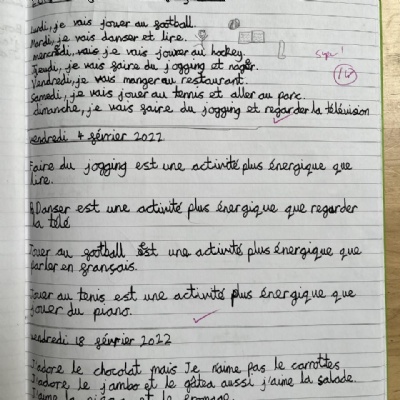 Lundi, je vais jouer au football.
Mardi, je vais danser et lire.
mercredi, vais je vais jouer au hockey.
Jeudi, je vais faire du jogging et nager.
Vendredi, je vais manger au restaurant.
Samedi, je vais jouer au tennis et aller au parc.
dimanche, je vais faire du jogging et regarder la télévision
vendredi 4 février 2022
Faire du jogging est une activité plus énergique que
lire.
Danser est une activité plus énergique que regarder
la télé
Jouer au football est une activité plus énergique que
parler en français.
Jouer au tenis est une activité plus énergique que
jouer du piano.
vendredi 18 février 2022
J'adore le chocolat mais Je n'aime pas le carrottes
J'adore le jambo et le gâtea aussi j'aime la salade.
J'aime la et le fromage